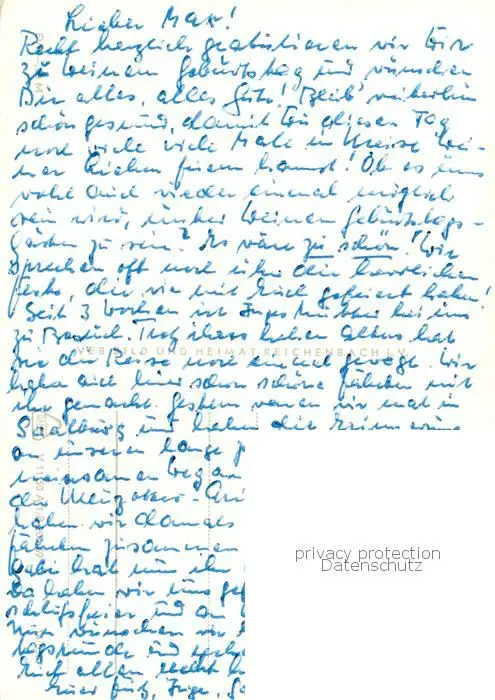 Lieber Max!
Recht herzlich gratulieren wir Dir
zu Deinem Geburtstag und wünschen
Dir alles, alles Gute! Bleib' weiterhin
schön gesund, damit Du diesen Tag
noch viele viele Male im Kreise Dei-
ner Lieben feiern kannst! Ob es uns
wohl auch wieder einmal möglich
sein wird, unter Deinen Geburtstags-
gästen zu sein? Es wäre zu schön! Wir
sprechen oft noch über die herrlichen
Feste, die wir mit Euch gefeiert haben!
Seit 3 Wochen ist Inges Mutter bei uns
zu Besuch. Trotz ihres hohen Alters hat
sie die Reise noch einmal gewagt. Wir
VEB BILD UND HEIMAT REICHENBACH I. V.
haben auch hier schon schöne Fahrten mit
ihr gemacht. Gestern waren wir mal in
Saalburg und haben die Erinnerung
an unseren
meinsamen Weg
haben wir damals
Fahrten zusammen
Gabi hat nun ihr
Da haben wir uns
und an
Nun wünschen wir
Euch allen recht
Euer Fritz, Inge,
privacy protection
Datenschutz